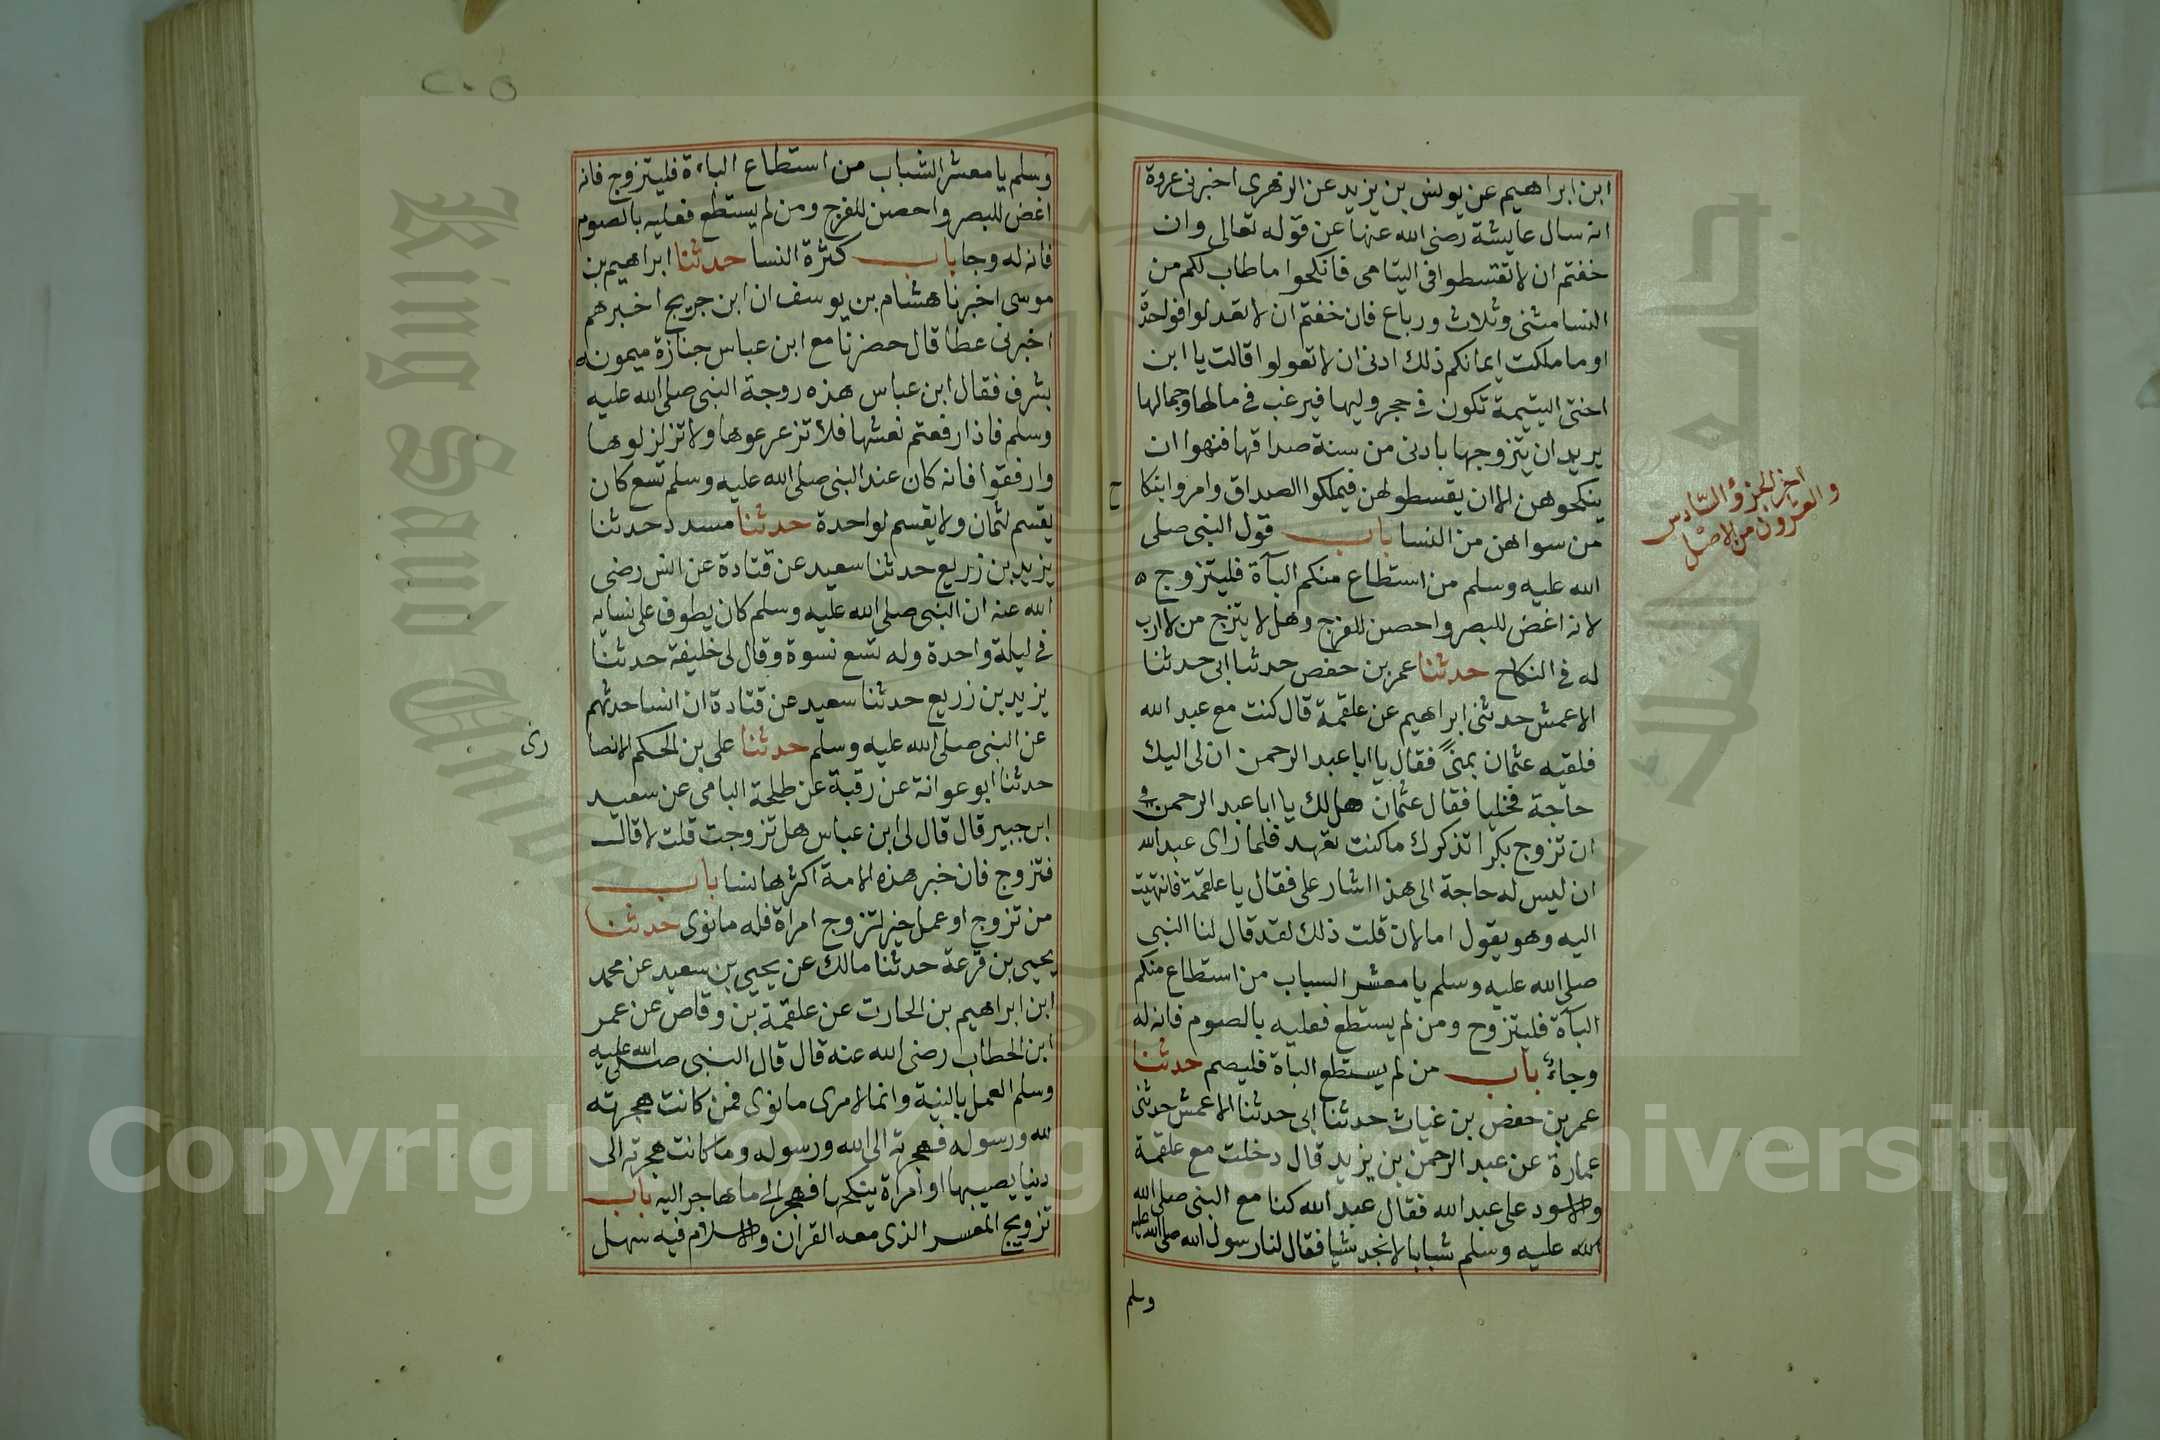 ابن ابراهيم عن يونس بن يزيد عن الزهري اخبرني عروة
انه سال عايشة رضي الله عنها عن قوله تعالى وان
خفتم ان لا تقسطوا في اليتامى فانكحوا ما طاب لكم من
النسا مثنى وثلاث ورباع فان خفتم ان لا تعدلوا فواحدة
او ما ملكت ايمانكم ذلك ادنى ان لا تعولوا قالت يا ابن
اختي اليتيمة تكون في حجر وليها فيرغب في مالها وجمالها
يريد ان يتزوجها بادنى من سنة صداقها فنهوا ان
ينكحوهن الا ان يقسطوا لهن فيملكوا الصداق وامروا بنكا
ح
من سواهن من النسا باب قول النبي صلى
الله عليه وسلم من استطاع منكم البآة فليتزوج ه
لانه اغض للبصر واحصن للفرج وهل لا يتزج من لا ارب
له في النكاح حدثنا عمر بن حفص حدثنا ابي حدثنا
الاعمش حدثني ابراهيم عن علقمة قال كنت مع عبد الله
فلقيه عثمان بمنى فقال يا ابا عبد الرحمن ان لي اليك
حاجة فخليا فقال عثمان هل لك يا ابا عبد الرحمن في
ان تزوج بكرا تذكرك ما كنت تعهد فلما راى عبد الله
ان ليس له حاجة الى هذا اشار علي فقال يا علقمة فانتهيت
اليه وهو يقول اما لان قلت ذلك لقد قال لنا النبي
صلى الله عليه وسلم يا معشر السباب من استطاع منكم
البآة فليتزوج ومن لم يستطع فعليه بالصوم فانه له
وجاء باب من لم يستطع البآة فليصم حدثنا
عمر بن حفص بن غياث حدثنا ابي حدثنا الاعمش حدثني
عمارة عن عبد الرحمن بن يزيد قال دخلت مع علقمة
والاسود على عبد الله فقال عبد الله كنا مع النبي صلى الله
الله عليه وسلم شبابا لا نجد شيا فقال لنا رسول الله صلى الله عليه
وسلم
اخر الجزؤ السادس
والعشرون من الاصل
٢٠٥
وسلم يا معشر الشباب من استطاع الباءة فليتزوج فانه
اغض للبصر واحصن للفرج ومن لم يستطع فعليه بالصوم
فانه له وجا باب كثرة النسا حدثنا ابراهيم بن
موسى اخبرنا هشام بن يوسف ان ابن جريج اخبرهم
اخبرني عطا قال حضرنا مع ابن عباس جنازة ميمونه
بشرف فقال ابن عباس هذه زوجة النبي صلى الله عليه
وسلم فاذا رفعتم نعشها فلا تزعزعوها ولا تزلزلوها
وارفقوا فانه كان عند النبي صلى الله عليه وسلم تسع كان
يقسم لثمان ولا يقسم لواحدة حدثنا مسدد حدثنا
يزيد بن زريع حدثنا سعيد عن قتادة عن انس رضي
الله عنه ان النبي صلى الله عليه وسلم كان يطوف على نسايه
في ليلة واحدة وله تسع نسوة وقال لي خليفة حدثنا
يزيد بن زريع حدثنا سعيد عن قتادة ان انسا حدثهم
عن النبي صلى الله عليه وسلم حدثنا علي بن الحكم الانصا
ري
حدثنا ابو عوانة عن رقبة عن طلحة اليامي عن سعيد
ابن جبير قال قال لي ابن عباس هل تزوجت قلت لا قال
فتزوج فان خير هذه الامة اكثرها نسا باب
من تزوج او عمل خير لتزوج امراة فله ما نوى حدثنا
يحيى بن قزعة حدثنا مالك عن يحيى بن سعيد عن محمد
ابن ابراهيم بن الحارث عن علقمة بن وقاص عن عمر
ابن الخطاب رضي الله عنه قال قال النبي صلى الله عليه
وسلم العمل بالنية وانما لامرى ما نوى فمن كانت هجرته
لله ورسوله فهجرته الى الله ورسوله وما كانت هجرته الى
دنيا يصيبها او امراة ينكحها فهجر الى ما هاجر اليه باب
تزويج المعسر الذي معه القران والاسلام فيه سهل
King Saud University
جامعة الملك
1957
Copyright © King Saud University